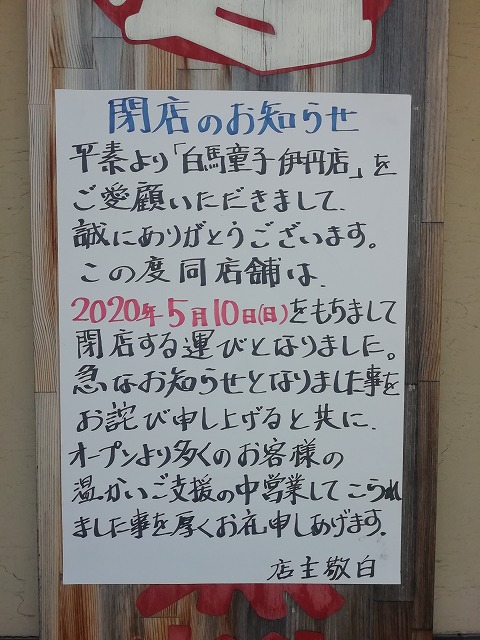 閉店のお知らせ
平素より「白馬童子伊丹店」を
ご愛顧いただきまして、
誠にありがとうございます。
この度同店舗は、
2020年5月10日(日)をもちまして
閉店する運びとなりました。
急なお知らせとなりました事を
お詫び申し上げると共に、
オープンより多くのお客様の
温かいご支援の中営業してこられ
ました事を厚くお礼申しあげます。
店主敬白